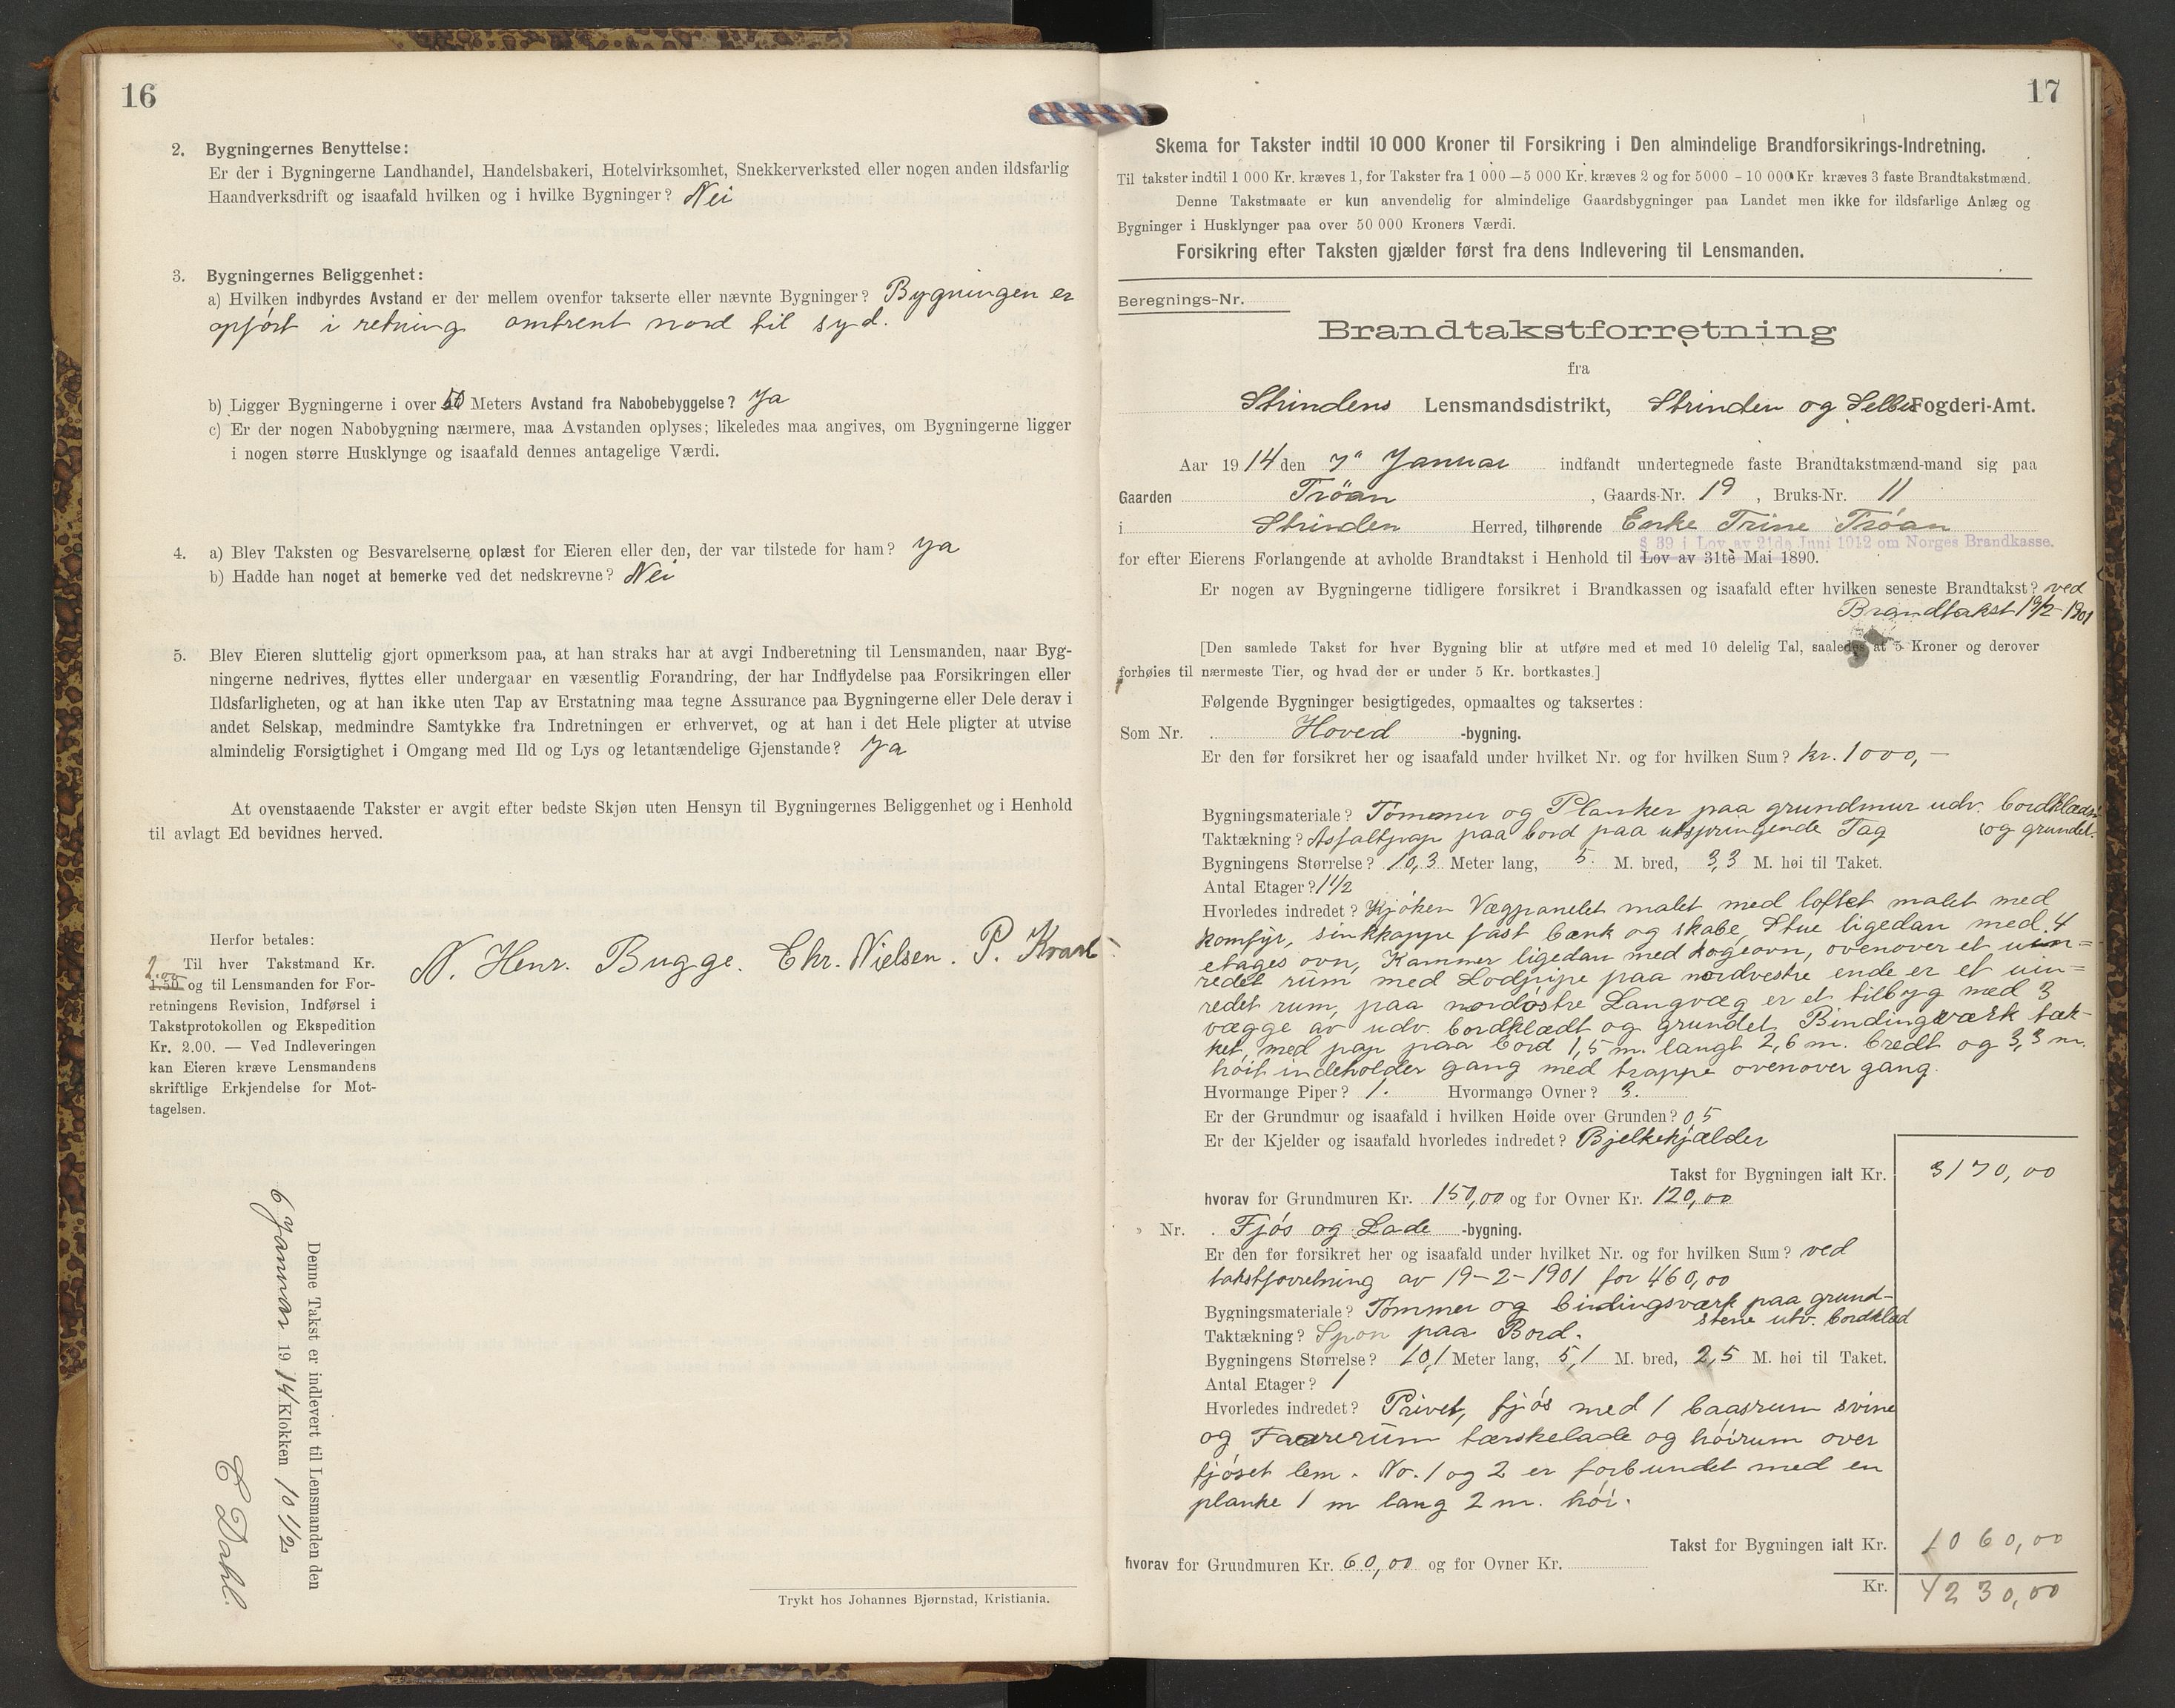 16
2. Bygningernes Benyttelse:
Er der i Bygningerne Landhandel, Handelsbakeri, Hotelvirksomhet, Snekkerverksted eller nogen anden ildsfarlig
Haandverksdrift og isaafald hvilken og i hvilke Bygninger? Nei
3. Bygningernes Beliggenhet:
a) Hvilken indbyrdes Avstand er der mellem ovenfor takserte eller nævnte Bygninger? Bygningen er
opført i retning omtrent nord til syd.
b) Ligger Bygningerne i over 50 Meters Avstand fra Nabobebyggelse? Ja
c) Er der nogen Nabobygning nærmere, maa Avstanden oplyses; likeledes maa angives, om Bygningerne ligger
i nogen større Husklynge og isaafald dennes antagelige Værdi.
4. a) Blev Taksten og Besvarelserne oplæst for Eieren eller den, der var tilstede for ham? Ja
b) Hadde han noget at bemerke ved det nedskrevne? Nei
5. Blev Eieren sluttelig gjort opmerksom paa, at han straks har at avgi Indberetning til Lensmanden, naar Byg-
ningerne nedrives, flyttes eller undergaar en væsentlig Forandring, der har Indflydelse paa Forsikringen eller
Ildsfarligheten, og at han ikke uten Tap av Erstatning maa tegne Assurance paa Bygningerne eller Dele derav i
andet Selskap, medmindre Samtykke fra Indretningen er erhvervet, og at han i det Hele pligter at utvise
almindelig Forsigtighet i Omgang med Ild og Lys og letantændelige Gjenstande? Ja
At ovenstaaende Takster er avgit efter bedste Skjøn uten Hensyn til Bygningernes Beliggenhet og i Henhold
til avlagt Ed bevidnes herved.
N. Henr. Bugge. Chr. Nielsen. P. Kvarl
Herfor betales:
Til hver Takstmand Kr.
2.00
1.50 og til Lensmanden for For-
retningens Revision, Indførsel i
Takstprotokollen og Ekspedition
Kr. 2.00. — Ved Indleveringen
kan Eieren kræve Lensmandens
skriftlige Erkjendelse for Mot-
tagelsen.
Denne Takst er indlevert til Lensmanden den
6 Januar 1914 Klokken 10 1/2
E Dahl.
Trykt hos Johannes Bjørnstad, Kristiania.
17
Skema for Takster indtil 10 000 Kroner til Forsikring i Den almindelige Brandforsikrings-Indretning.
Til takster indtil 1 000 Kr. kræves 1, for Takster fra 1 000—5 000 Kr. kræves 2 og for 5000 - 10 000 Kr kræves 3 faste Brandtakstmænd.
Denne Takstmaate er kun anvendelig for almindelige Gaardsbygninger paa Landet men ikke for ildsfarlige Anlæg og
Bygninger i Husklynger paa over 50 000 Kroners Værdi.
Forsikring efter Taksten gjælder først fra dens Indlevering til Lensmanden.
Beregnings-Nr.
Brandtakstforretning
fra
Strindens Lensmandsdistrikt, Strinden og Selbu Fogderi-Amt.
Aar 1914 den 7de Januar indfandt undertegnede faste Brandtakstmænd-mand sig paa
Gaarden Trøan, Gaards-Nr. 19, Bruks-Nr. 11
i Strinden Herred, tilhørende Enke Trine Trøan
§ 39 i Lov av 21de Juni 1912 om Norges Brandkasse.
for efter Eierens Forlangende at avholde Brandtakst i Henhold til Lov av 31te Mai 1890.
Er nogen av Bygningerne tidligere forsikret i Brandkassen og isaafald efter hvilken seneste Brandtakst? ved
Brandtakst 19/2 1901
[Den samlede Takst for hver Bygning blir at utføre med et med 10 delelig Tal, saaledes at 5 Kroner og derover
forhøies til nærmeste Tier, og hvad der er under 5 Kr. bortkastes.]
Følgende Bygninger besigtigedes, opmaaltes og taksertes:
Som Nr. Hoved -bygning.
Er den før forsikret her og isaafald under hvilket Nr. og for hvilken Sum? kr. 1000,-
Bygningsmateriale? Tømmer og Planker paa grundmur udv. bordklædn
Taktækning? Asfaltpap paa bord paa utspringende Tag (og grundet.
Bygningens Størrelse? 10,3 Meter lang, 5 M. bred, 3,3 M. høi til Taket.
Antal Etager? 1 1/2
Hvorledes indredet? Kjøken Vægpanelet malet med loftet malet med
komfyr, sinkkappe fast bænk og skabe, Stue ligedan med 4
etages ovn, Kammer ligedan med kogeovn, ovenover et uin=
redet rum med Lodpipe paa nordvestre ende er et uin=
redet rum, paa nordøstre Langvæg er et tilbyg med 3
vægge av udv. bordklædt og grundet Bindingsværk tæk-
ket med pap paa bord 1,5 m. langt 2,6 m. bredt og 3,3 m.
høit indeholder gang med trappe ovenover gang.
Hvormange Piper? 1. Hvormange Ovner? 3.
Er der Grundmur og isaafald i hvilken Høide over Grunden? 0,5
Er der Kjelder og isaafald hvorledes indredet? Bjelkekjælder
Takst for Bygningen ialt Kr. 3170,00
hvorav for Grundmuren Kr. 150,00 og for Ovner Kr. 120,00
» Nr. Fjøs og Lade -bygning.
Er den før forsikret her og isaafald under hvilket Nr. og for hvilken Sum? ved
takstforretning av 19-2-1901 for 460,00
Bygningsmateriale? Tømmer og bindingsværk paa grund-
stene utv. bordklæd
Taktækning? Spon paa Bord.
Bygningens Størrelse? 10,1 Meter lang, 5,1 M. bred, 2,5 M. høi til Taket.
Antal Etager? 1
Hvorledes indredet? Privet, fjøs med 1 baasrum svine
og Faarerum tærskelade og høirum over
fjøset lem. No. 1 og 2 er forbundet med en
planke 1 m lang 2 m. høi.
Takst for Bygningen ialt Kr. 1060,00
hvorav for Grundmuren Kr. 60,00 og for Ovner Kr.
Kr. 4230,00